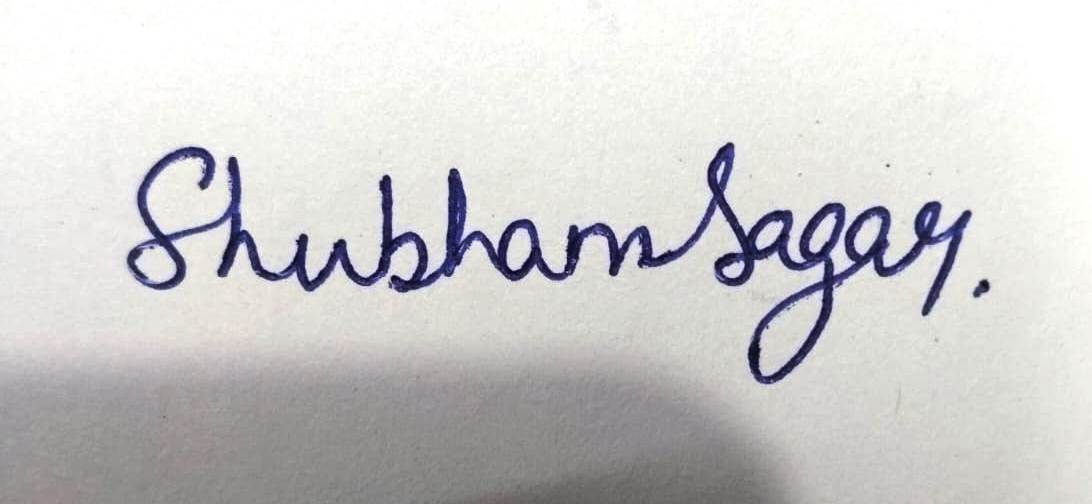 Shubham Sagar.